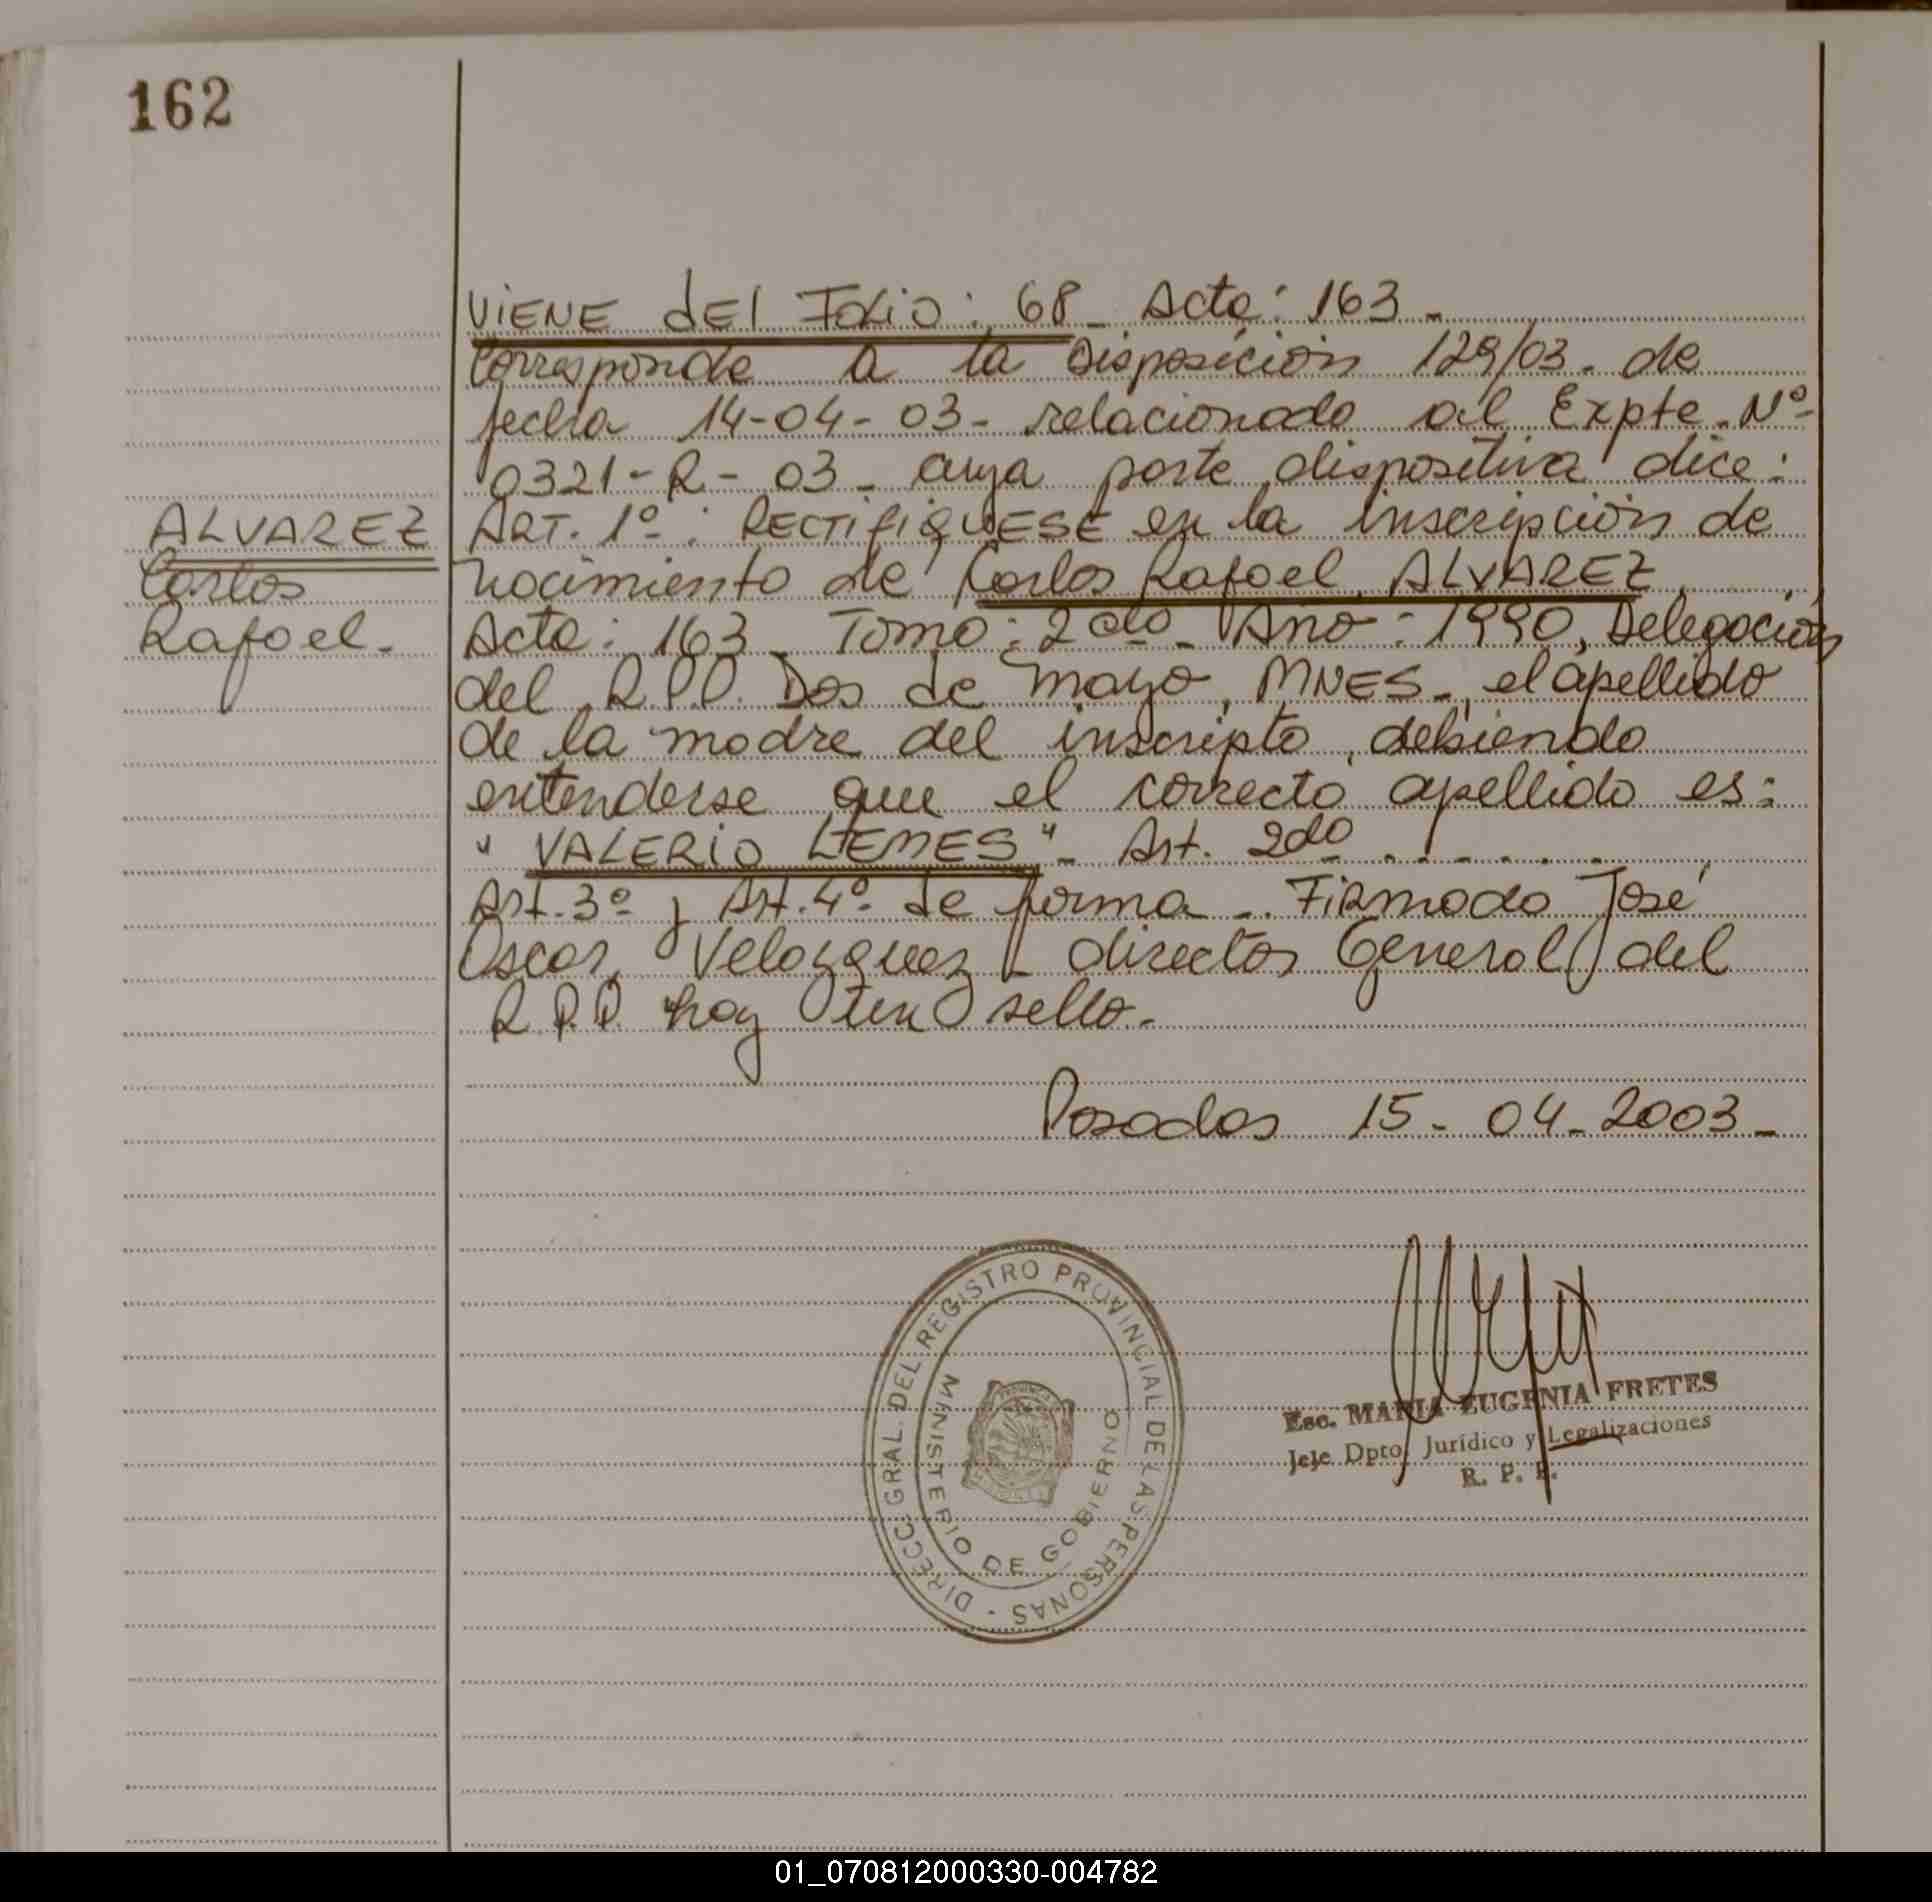 162
VIENE dEl FoLio: 68_ Acta: 163_
Corresponde a la Disposición 129/03. de
fecha 14-04-03- relacionado al Expte. Nº
0321-R-03_ cuya parte dispositiva dice:
ART. 1º: RECTIFIQUESE en la inscripción de
nacimiento de Carlos Rafael ALVAREZ,
Acta: 163_ Tomo: 2do_ Año: 1990, Delegación
del R.P.P. Dos de Mayo, MNES_, el apellido
de la madre del inscripto, debiendo
entenderse que el correcto apellido es:
"VALERIO LEMES"_ Art. 2do . . . . . . .
Art. 3º y Art. 4º de forma_. FiRmado José
Oscar Velazquez_ director General del
R.P.P. hay un sello._
Posadas 15-04-2003_
ALVAREZ
Carlos
Rafael.
DIRECC. GRAL. DEL REGISTRO PROVINCIAL DE LAS PERSONAS -
MINISTERIO DE GOBIERNO
Esc. MARIA EUGENIA FRETES
Jefe Dpto. Jurídico y Legalizaciones
R. P. P.
01_070812000330-004782